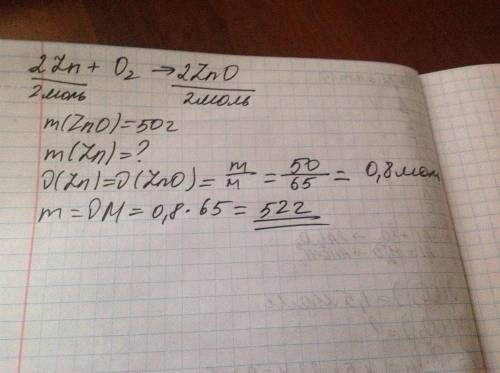 2Zn + O₂ → 2ZnO
2моль 2моль
m(ZnO)=50г
m(Zn)=?
υ(Zn)=υ(ZnO)= m/M = 50/65 = 0,8 мол
m=υM=0,8·65=52г